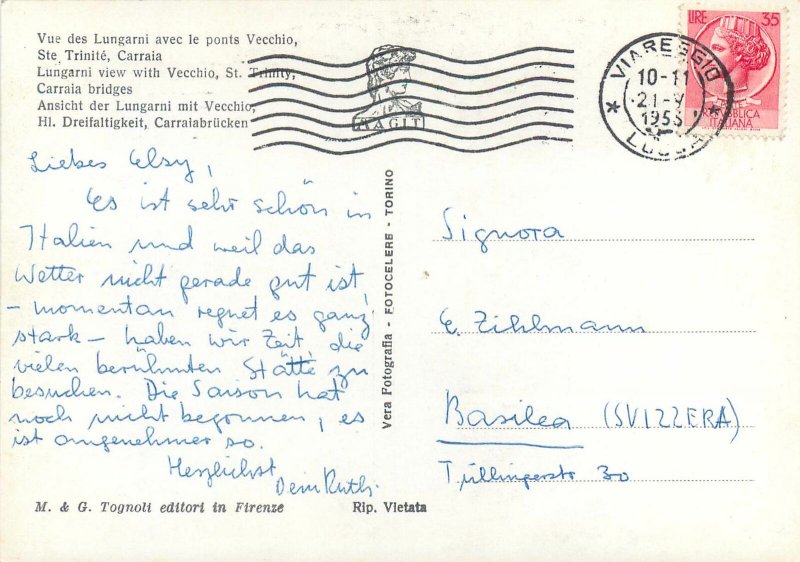 Vue des Lungarni avec le ponts Vecchio,
Ste Trinité, Carraia
Lungarni view with Vecchio, St. Trinity,
Carraia bridges
Ansicht der Lungarni mit Vecchio,
Hl. Dreifaltigkeit, Carraiabrücken
LIRE 35
REPUBBLICA
ITALIANA
VIAREGGIO
10-11
21·V
LUCCA
Liebes Elsy,
Es ist sehr schön in
Italien und weil das
Wetter nicht gerade gut ist,
– momentan regnet es ganz
stark – haben wir Zeit, die
vielen berühmten Stätte zu
besuchen. Die Saison hat
noch nicht begonnen, es
ist angenehmer so.
Herzlichst
Dein Ruth.
Vera Fotografia - FOTOCELERE - TORINO
Signora
E. Zihlmann
Basilea (SVIZZERA)
Tüllingerstr 30
M. & G. Tognoli editori in Firenze
Rip. Vietata